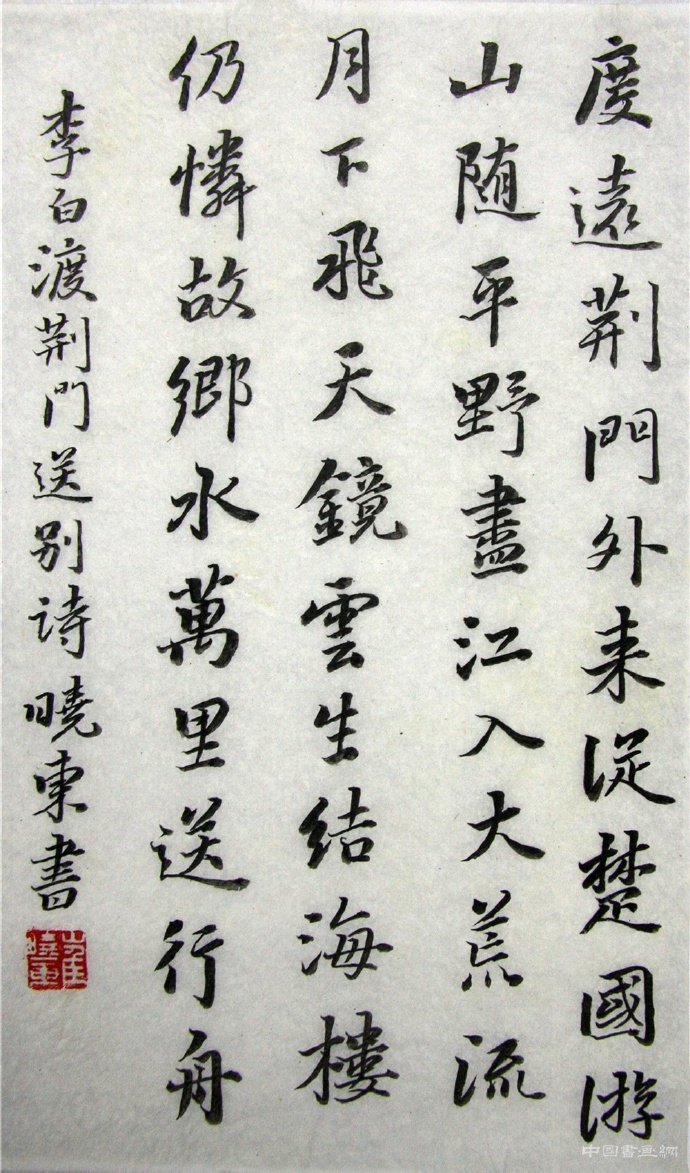 度遠荆門外来從楚國游
山随平野盡江入大荒流
月下飛天鏡雲生结海樓
仍憐故鄉水萬里送行舟
李白渡荆門送别诗曉東書
崔曉東
中国書画網